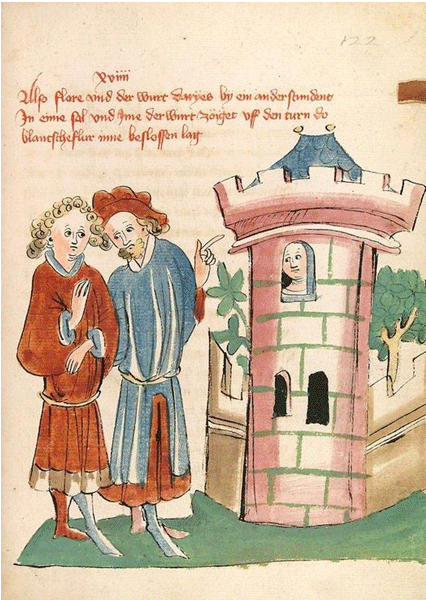 122
xviiij
Also flore vnd der wurt daryes by ein ander stundent
In eime sal vnd Ime der wurt zöiget vff den turn do
blantscheflur inne beslossen lag